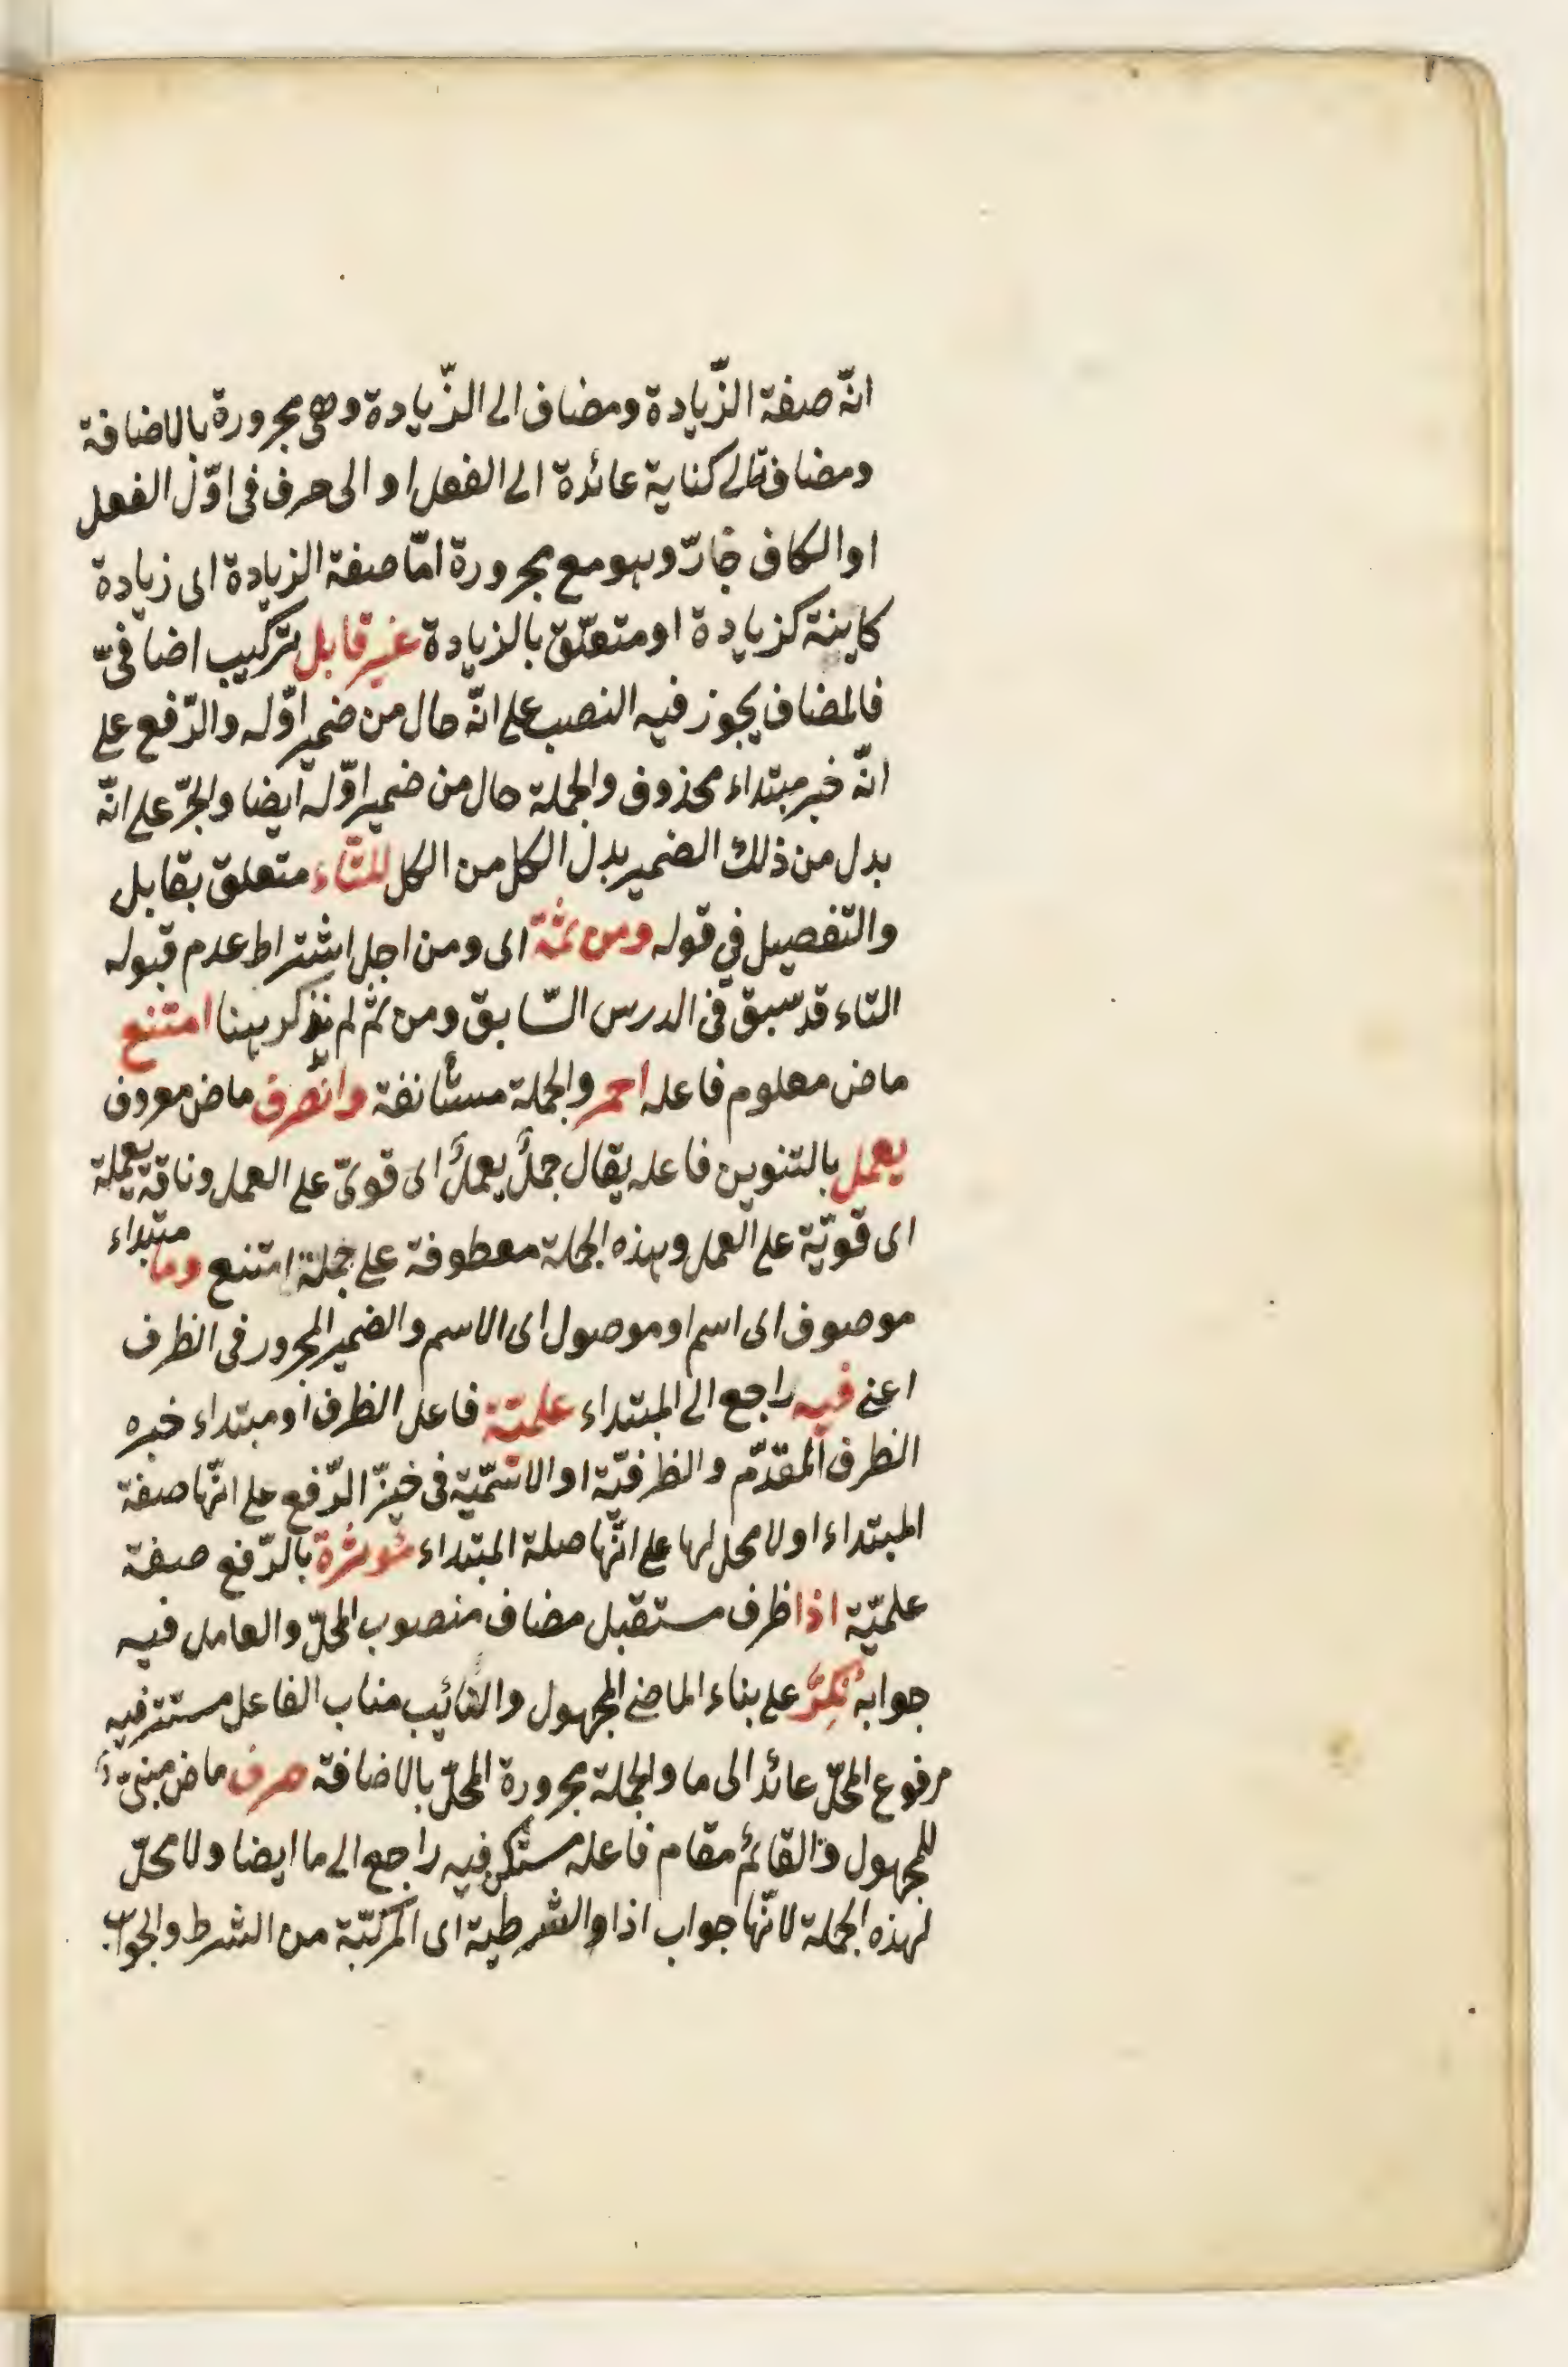 انّه صفة الزّيادة ومضاف الى الزّيادة وهى مجرورة بالاضافة
ومضافة الى كناية عائدة الى الفعل او الى حرف فى اوّل الفعل
او الكاف جارّ وهو مع مجرورة امّا صفة الزيادة اى زيادة
كاينة كزيادة او متعلّق بالزيادة غير قابل تركيب اضافىّ
فالمضاف يجوز فيه النصب على انّه حال من ضمير اوّله والرّفع على
انّه خبر مبتداء محذوف والجملة حال من ضمير اوّله ايضا والجرّ على انّه
بدل من ذلك الضمير بدل الكل من الكل للتّاء متعلق بقابل
والتفصيل فى قوله ومن ثمّة اى ومن اجل اشتراط عدم قبوله
التاء قد سبق فى الدرس السّابق ومن ثمّ لم نذكر ههنا امتنع
ماض معلوم فاعله احمر والجملة مستأنفة وانصرف ماض معروف
يعمل بالتنوين فاعله يقال جملٌ يعملٌ اى قوىّ على العمل وناقة يعملة
اى قويّة على العمل وهذه الجملة معطوفة على جملة امتنع وما مبتداء
موصوف اى اسم او موصول اى الاسم والضمير المجرور فى الظرف
اعنى فيه راجع الى المبتداء علميّة فاعل الظرف او مبتداء خبره
الظرف المقدّم والظرفيّة او الاسميّة فى حيّز الرّفع على انّها صفة
المبتداء او لا محل لها على انّها صلة المبتداء مؤثرة بالرّفع صفة
علميّة اذا ظرف مستقبل مضاف منصوب المحلّ والعامل فيه
جوابه نكّر على بناء الماضى المجهول والنائب مناب الفاعل مستتر فيه
مرفوع المحلّ عائد الى ما والجملة مجرورة المحلّ بالاضافة صرف ماض مبنىّ
للمجهول والقائم مقام فاعله مستكن فيه راجع الى ما ايضا ولا محلّ
لهذه الجملة لانّها جواب اذا والشرطية اى المركّبة من الشرط والجواب